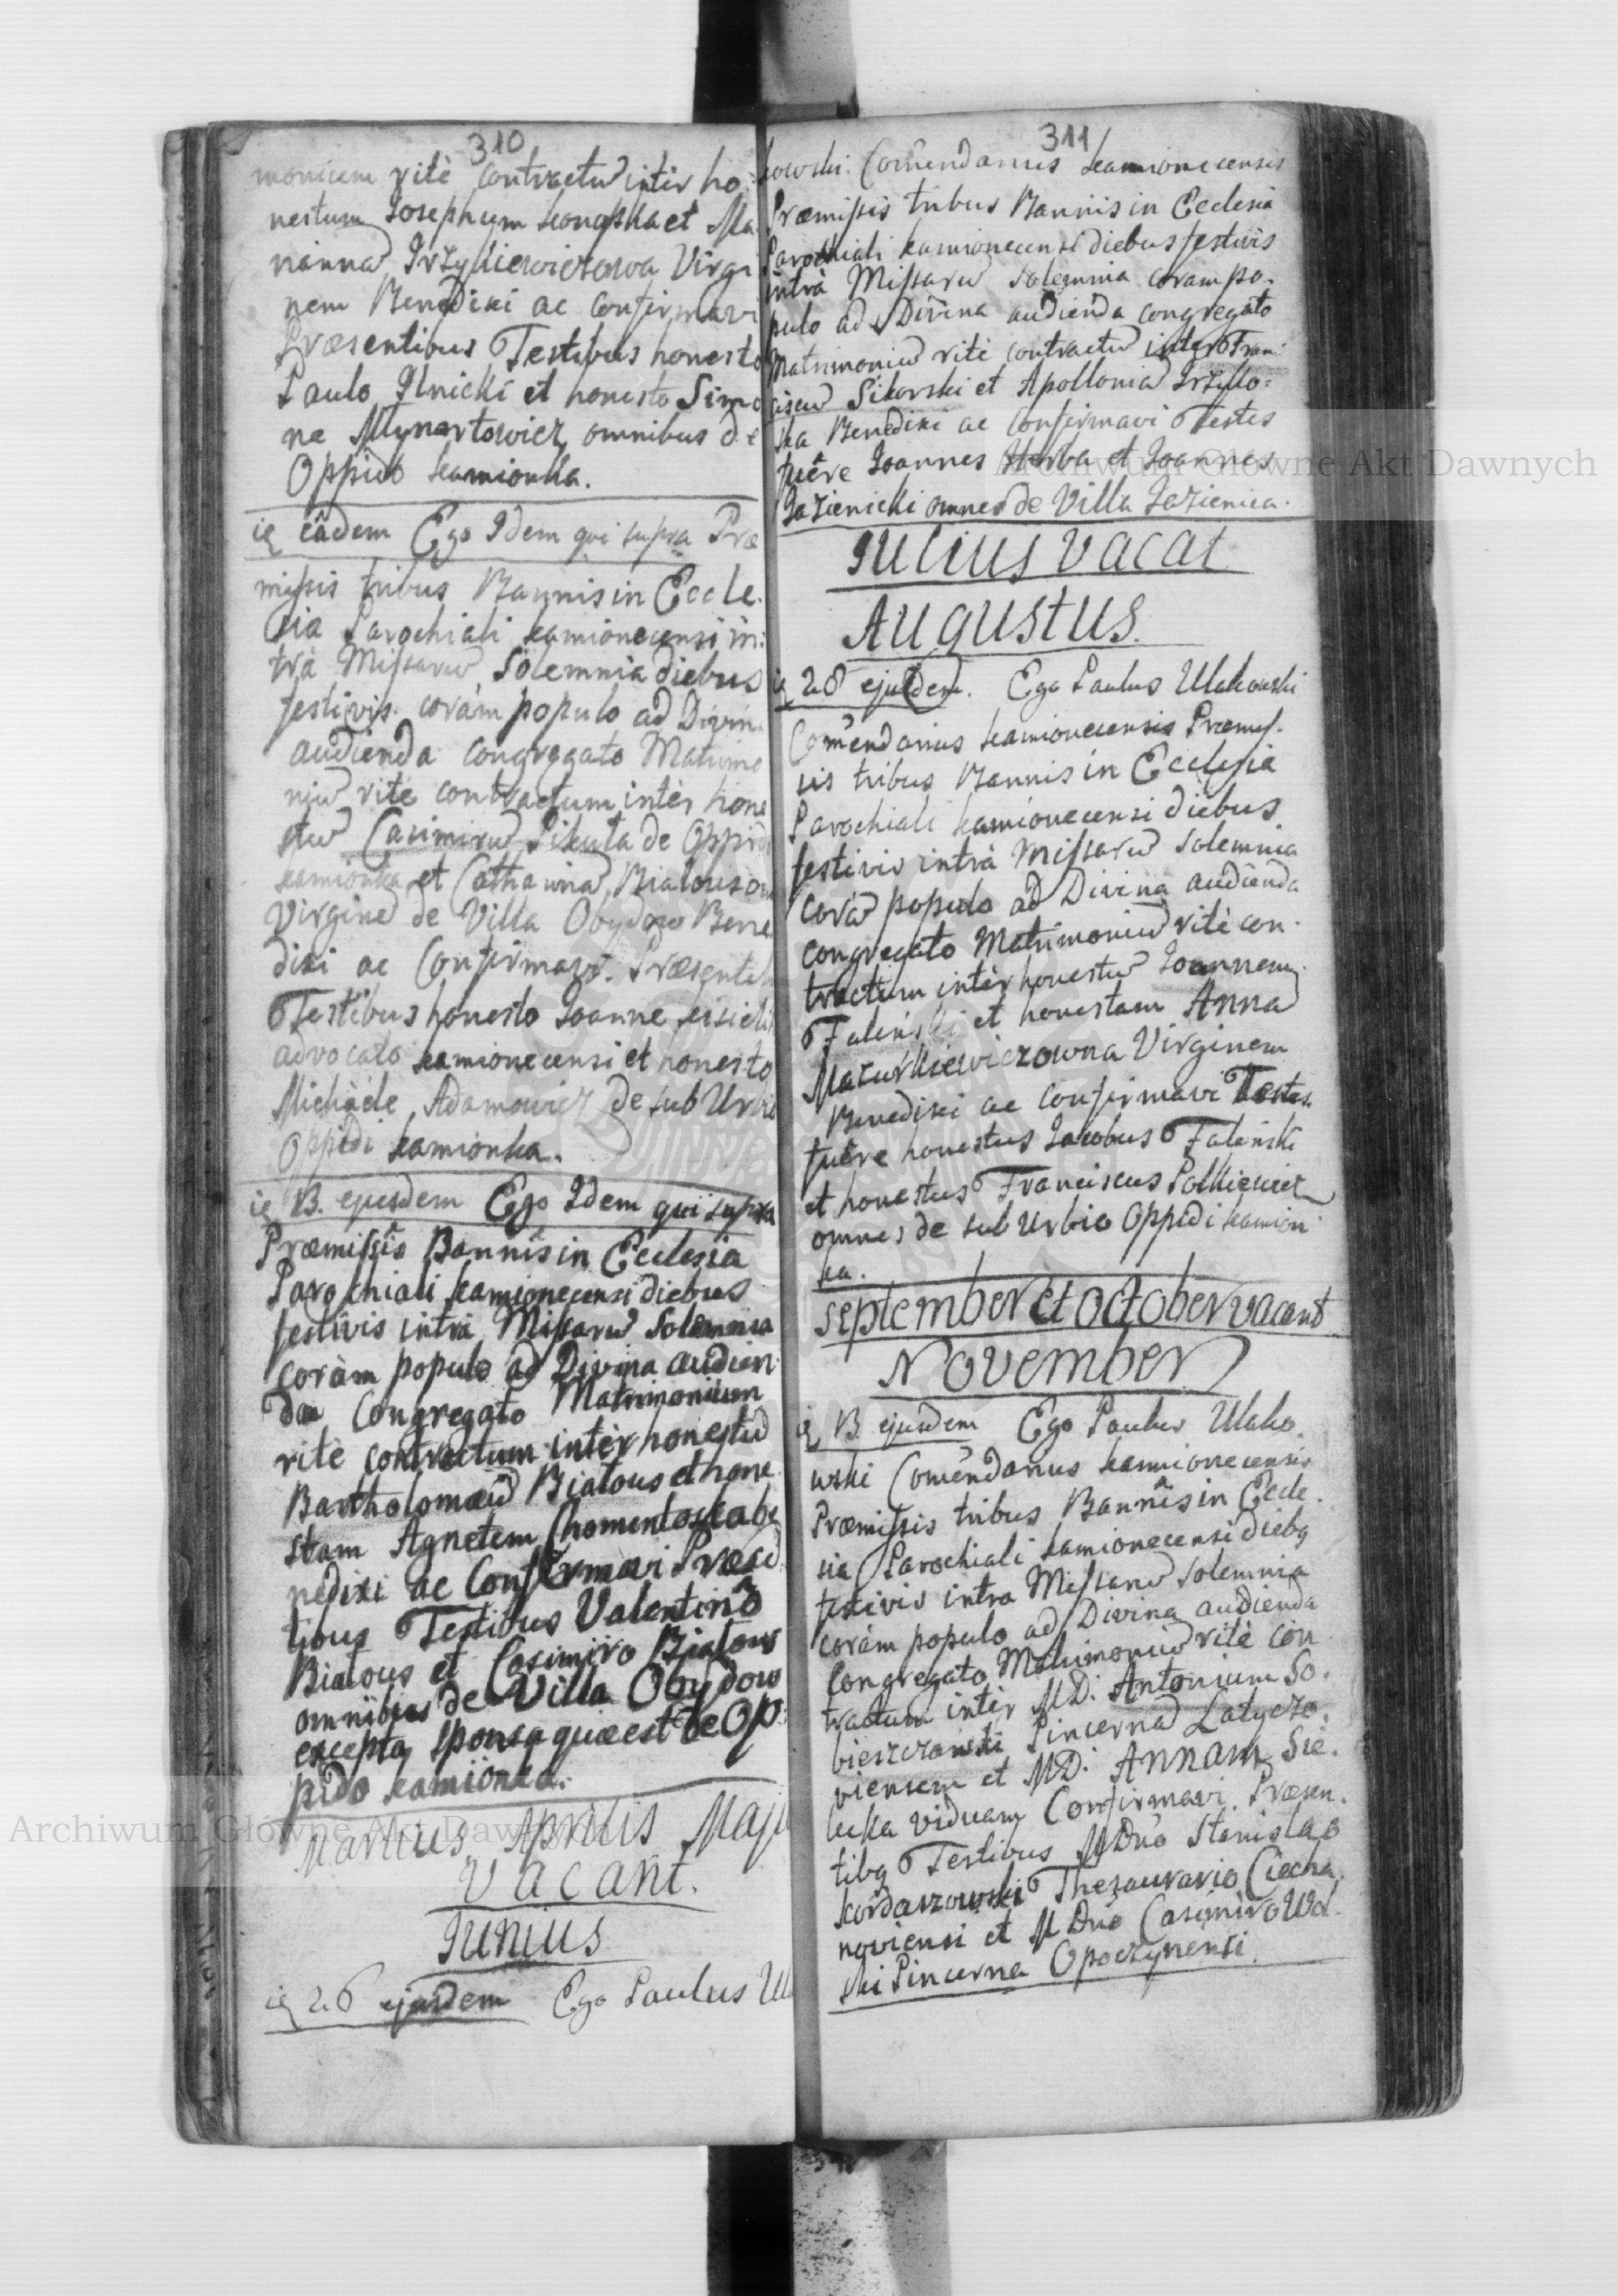 310
monium ritè contractū intèr ho
nestum Josephum et Ma
riannā Irzykiewiczowa Virgi
nem Benedixi ac confirmavi
Præsentibus Testibus honesto
Paulo Ilnicki et honesto Simo
ne Młynartowicz omnibus de
Oppido Kamionka.
eâdem Ego Idem qui supra Præ
missis tribus Bannis in Eccle.
sia Parochiali Kamionecensi in:
trà Missarū Solemnia diebus
festivis coràm populo ad Divin
audienda congregato Matrimo
niū ritè contractum intèr hone
stū Casimirū Pikuta de Oppid
Kamionka et Catharinā
Virginē de Villa Obydow Bene
dixi ac Confirmavi. Præsentib
Testibus honesto Joanne
advocato Kamionecensi et honesto
Michaele Adamowicz de sub Urbio
Oppidi Kamionka.
13. ejusdem Ego Idem qui supra
Præmissis Bannis in Ecclesia
Parochiali Kamionecensi diebus
festivis intrà Missarū Solemnia
coràm populo ad Divina audien
da Congregato Matrimonium
ritè contractum intèr honestū
Bartholomæū Białous et hone
stam Agnetem be
nedixi ac Confirmavi Præsē
tibus Testibus Valentinô
Białous et Casimiro Białous
omnibus de Villa Obydow
excepta sponsa quæ est de Op:
pido Kamionka.
Martius Aprilis Maju
vacant.
Junius
26 ejusdem Ego Paulus Ul
311
kowski. Com̃endarius Kamionecensis
Præmissis tribus Bannis in Ecclesia
Parochiali Kamionecensi diebus festivis
intrà Missarū Solemnia coram po.
pulo ad Divina audienda congregato
Matrimoniū ritè contractū intèr Fran
ciscū Sikorski et Apolloniā
ska Benedixi ac Confirmavi Testes
fuêre Joannes Herba et Joannes
Łazienicki omnes de Villa Łazienica.
Julius vacat
Augustus.
28 ejusdem. Ego Paulus Ulakowski
Com̃endarius Kamionecensis Præmis.
sis tribus Bannis in Ecclesia
Parochiali Kamionecensi diebus
festivis intrà Missarū Solemnia
corā populo ad Divina audienda
congregato Matrimoniū ritè con.
tractum intèr honestū Joannem
Faleński et honestam Anna
Maturkiewiczowna Virginem
Benedixi ac confirmavi Testes.
fuêre honestus Jacobus Faleński
et honestus Franciscus
omnes de sub Urbio Oppidi Kamion
ka.
September et October vacant
November
13. ejusdem Ego Paulus Ulako.
wski Com̃endarius Kamionecensis
Præmissis tribus Bannis in Eccle.
sia Parochiali Kamionecensi diebq
festivis intra Missarū Solemnia
coràm populo ad Divina audienda
Congregato Matrimoniū ritè con
tractum intèr MD. Antonium So.
bieszczanski Pincernā Latyczo.
viensem et MD. Annam Sie.
lecka viduam Confirmavi. Præsen.
tibq Testibus M Dno Stanislao
Kordaszowski Thesaurario Ciecha.
noviensi et M Dno Casimiro Wol.
ski Pincerna Opoczynensi.
Archiwum Główne Akt Dawnych
Archiwum Główne Akt Dawnych